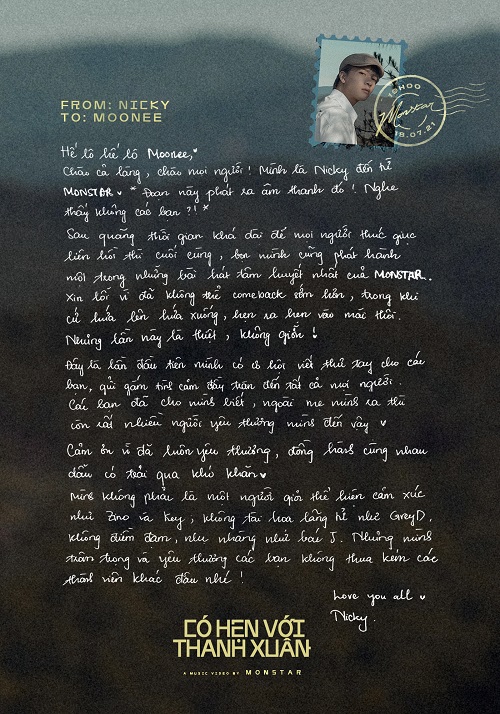 18H00
Monstar
18.07.21
FROM: NICKY
TO: MOONEE
Hế lô hế lô Moonee,♥
Chào cả làng, chào mọi người! Mình là Nicky đến từ
MONSTAR ♥ * Đoạn này phát ra âm thanh đó! Nghe
thấy không các bạn ?! *
Sau quãng thời gian khá dài để mọi người thúc giục
liên hồi thì cuối cùng, bọn mình cũng phát hành
một trong những bài hát tâm huyết nhất của MONSTAR.
Xin lỗi vì đã không thể comeback sớm hơn, trong khi
cứ hứa lên hứa xuống, hẹn ra hẹn vào mãi thôi.
Nhưng lần này là thiệt, không giỡn!
Đây là lần đầu tiên mình có cơ hội viết thư tay cho các
bạn, gửi gắm tình cảm đầy tràn đến tất cả mọi người.
Các bạn đã cho mình biết, ngoài mẹ mình ra thì
còn rất nhiều người yêu thương mình đến vậy ♥
Cảm ơn vì đã luôn yêu thương, đồng hành cùng nhau
dẫu có trải qua khó khăn ♥
Mình không phải là một người giỏi thể hiện cảm xúc
như Zino và Key, không tài hoa lãng tử như GreyD,
không điềm đạm, nhẹ nhàng như bác J. Nhưng mình
trân trọng và yêu thương các bạn không thua kém các
thành viên khác đâu nhé!
Love you all ♥
Nicky.
CÓ HẸN VỚI
THANH XUÂN
A MUSIC VIDEO BY MONSTAR